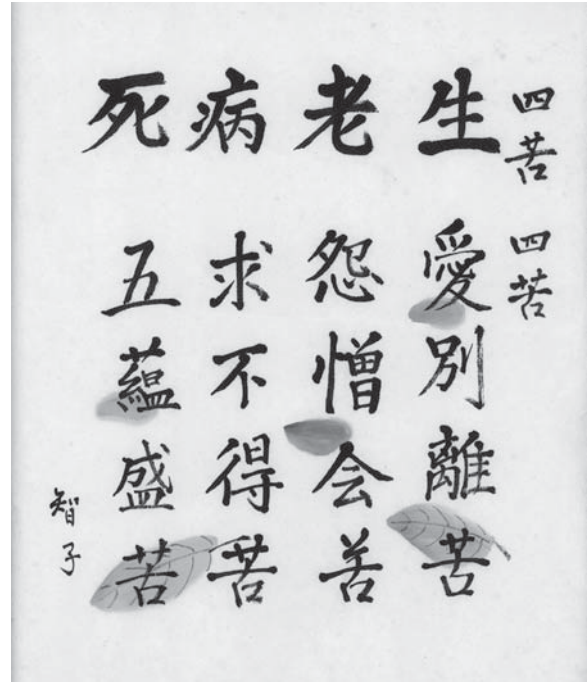 四苦
生
老
病
死
四苦
愛別離苦
怨憎会苦
求不得苦
五蘊盛苦
智子